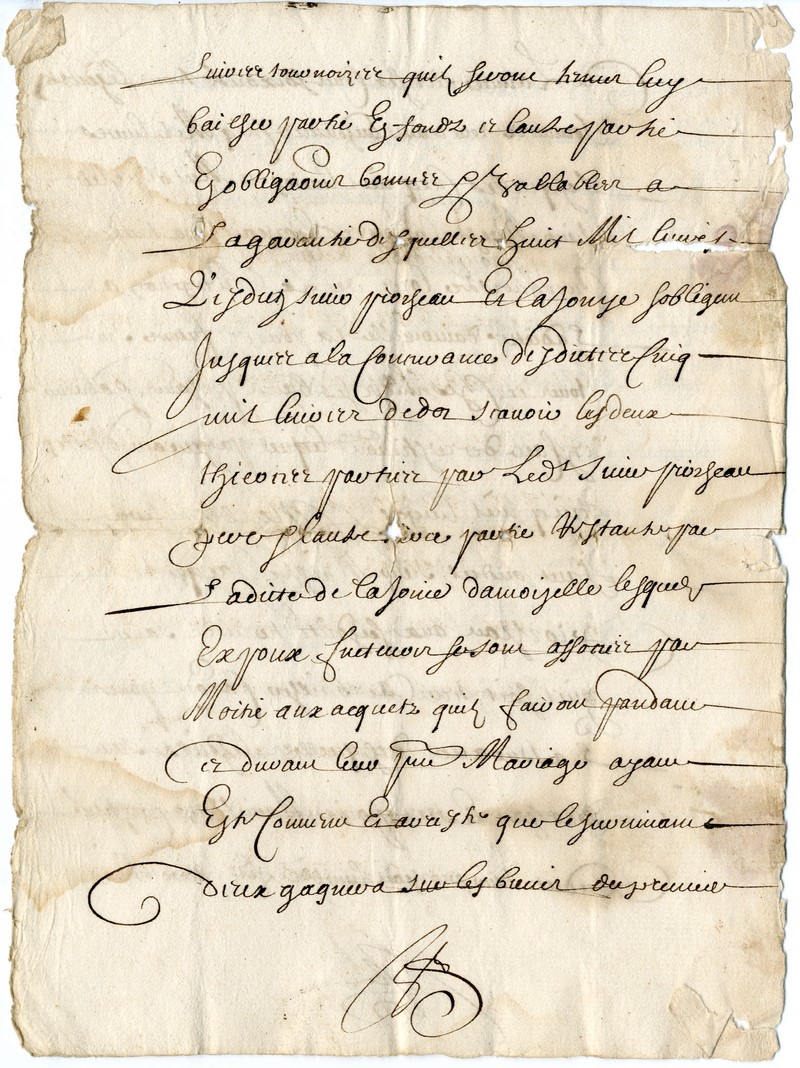 Livres tournoizes quilz seront tenus luy
bailher partie En fondz et lautre partie
En obligaons bonnes Et vallables a
La garantie desquelles huict Mil livres
Lesdictz sieur Et la sonne sobligent
Jusques a la Concurance desdictes Cinq
mil livres de dot scavoir les deux
thierces parties par Ledt sieur
pere Et lautre tierce partie Restante par
Ladicte de damoizelle lesquelz
Expoux futeurs se sont associes par
Moitie aux acquetz quilz fairont pandant
et durant leur pnt Mariage ayant
Este Convenu Et arreste que le survivant
deux gagnera sur les biens du premier